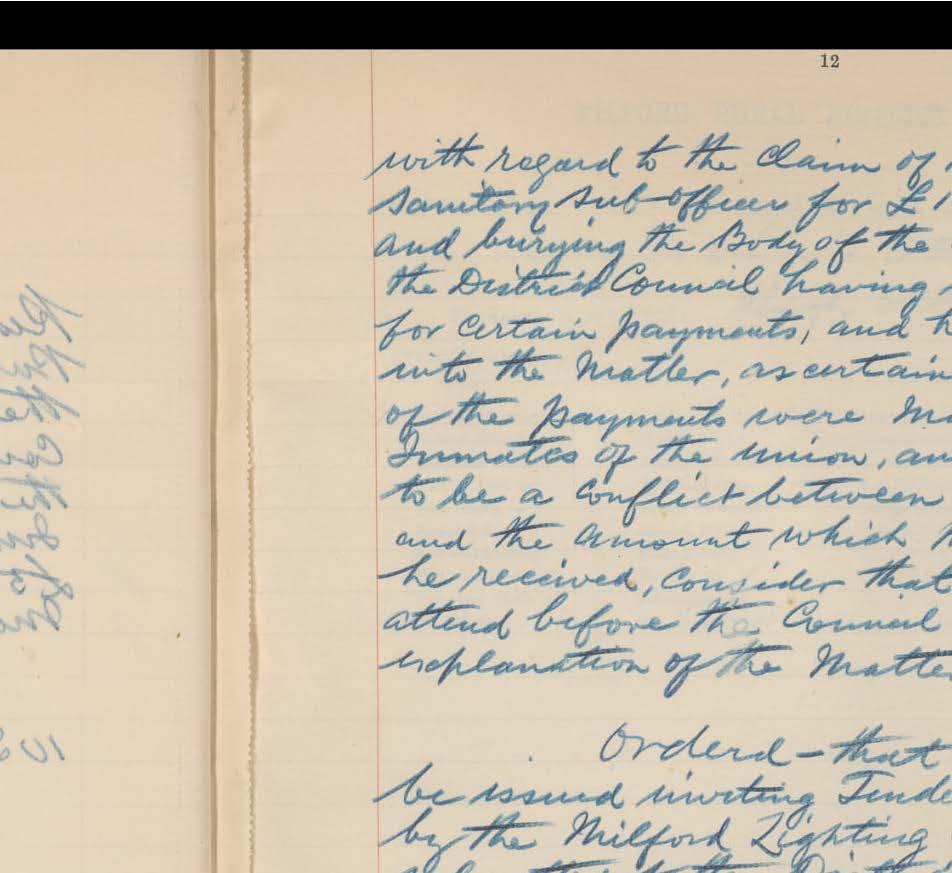 12
with regard to the Claim of
Sanitary Sub-Officer for £1
and burying the Body of the
the District Council having
for Certain payments, and h
into the Matter, ascertain
of the payments were Ma
Inmates of the Union, an
to be a Conflict between
and the Amount which
he received, Consider that
attend before the Council
explanation of the Matte
Orderd - that
be issued inviting Tende
by the Milford Lighting
to the